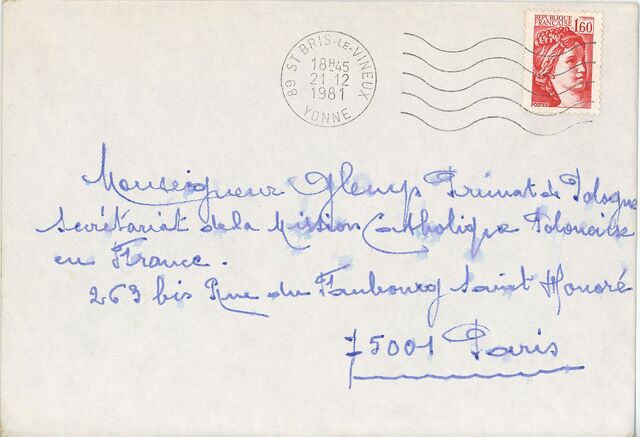 89 ST BRIS-LE-VINEUX
18H45
21-12
1981
YONNE
REPUBLIQUE
FRANÇAISE
1,60
POSTES
Monseigneur Glemp Primat de Pologne
Secrétariat de la Mission Catholique Polonaise
en France.
263 bis Rue du Faubourg Saint Honoré
75001 Paris